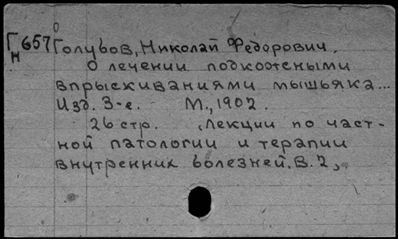 Г657 Голубов, Николай Федорович.
Н
О лечении подкожными
впрыскиваниями мышьяка...
Изд. 3-е. М., 1902.
26 стр. (Лекции по част-
ной патологии и терапии
внутренних болезней. В. 2)